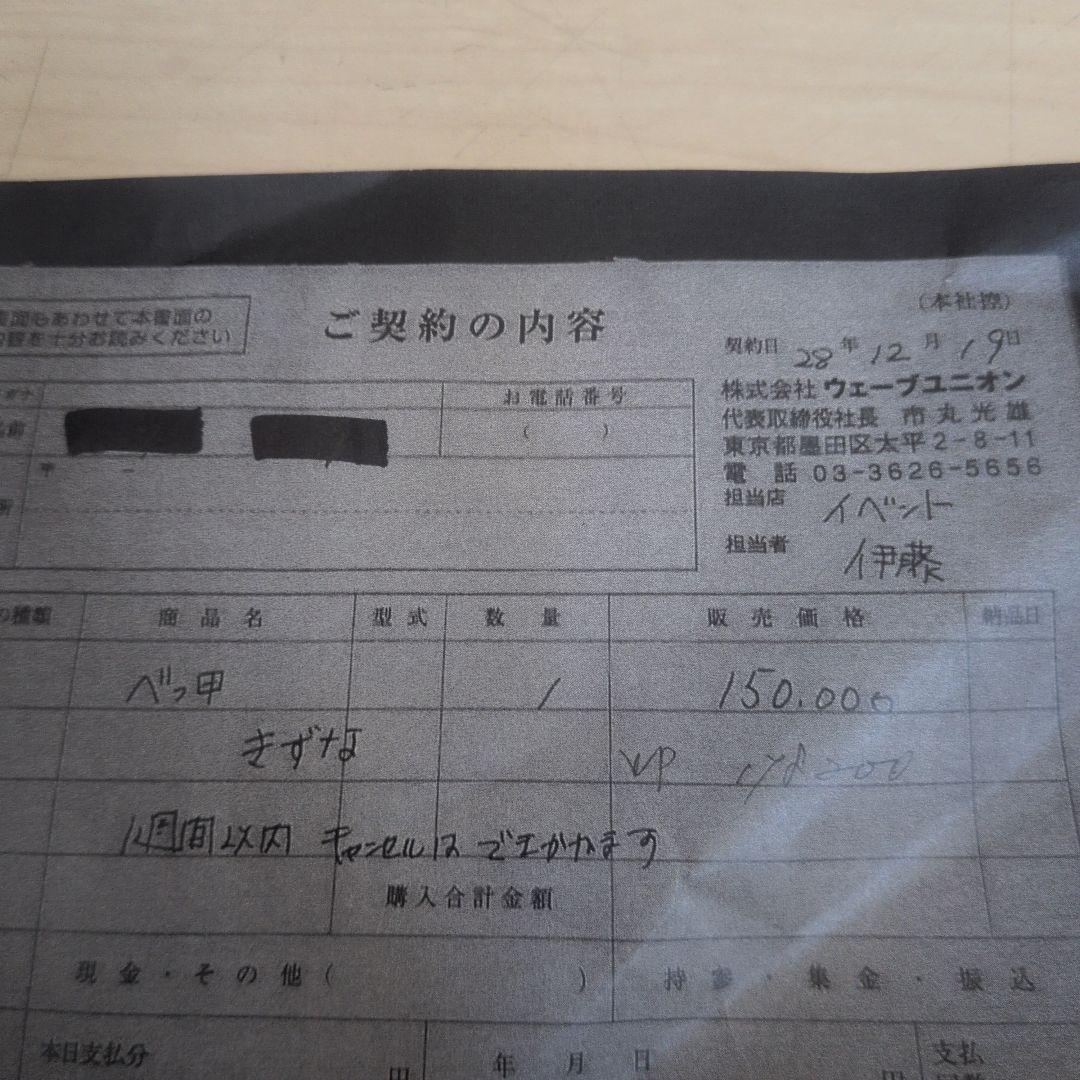 (本社控)
裏面もあわせて本書面の
内容を十分お読みください
ご契約の内容
契約日 28年 12月 19日
株式会社 ウェーブユニオン
代表取締役社長 市丸光雄
東京都墨田区太平2-8-11
電話 03-3626-5656
担当店 イベント
担当者 伊藤
お電話番号
( )
〒 -
の種類 商品名 型式 数量 販売価格 納品日
べっ甲 1 150.000
きずな
1週間以内 キャンセルは
購入合計金額
現金・その他( ) 持参・集金・振込
本日支払分 円 年 月 日 円 支払